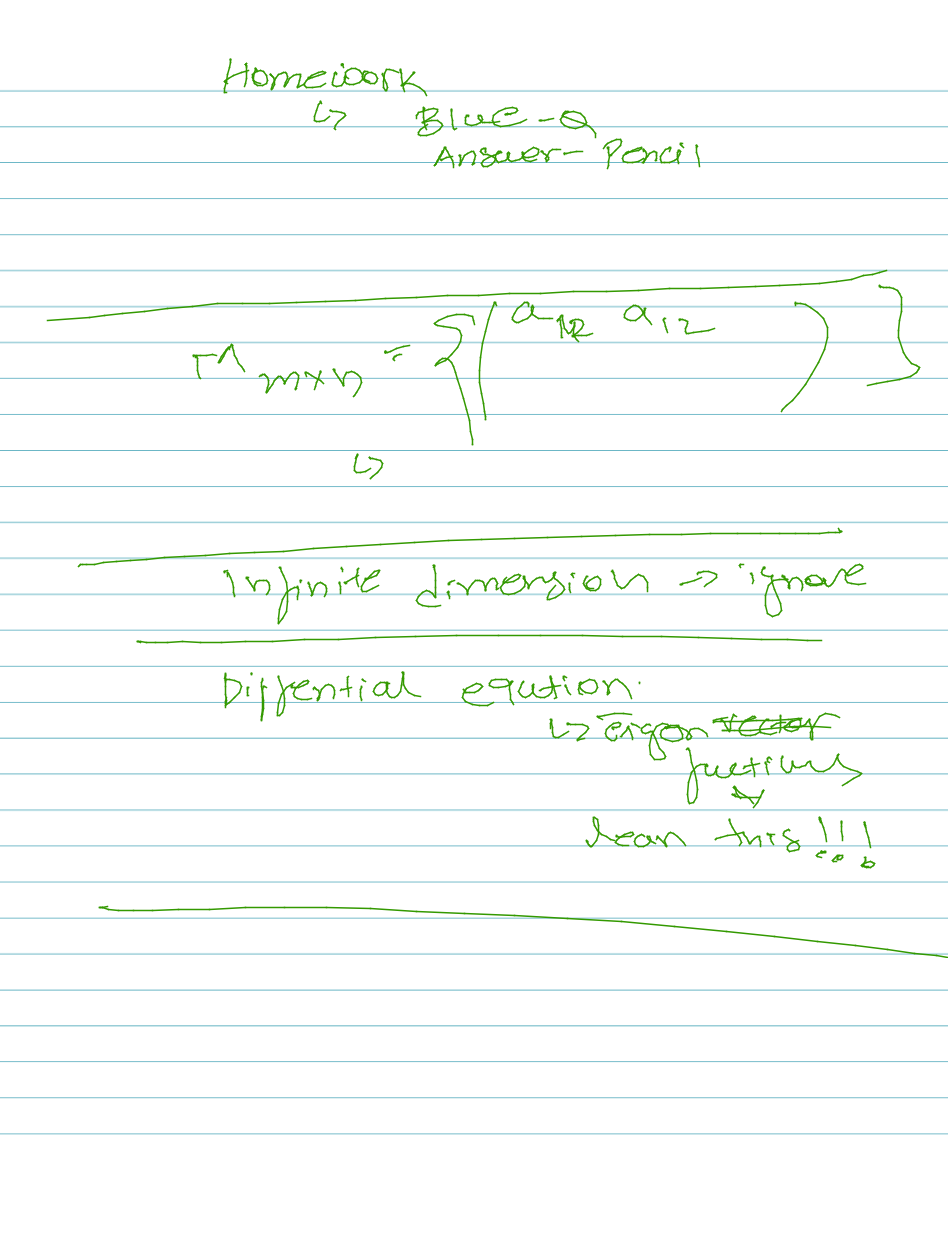 Homework
↳ Blue - Q
Answer - Pencil
M m×n = { ( a₁₂ a₁₂ ) }
↳
Infinite dimension → ignore
Diffential eqution.
↳ Eigen vector
fuctions
lean this !!!